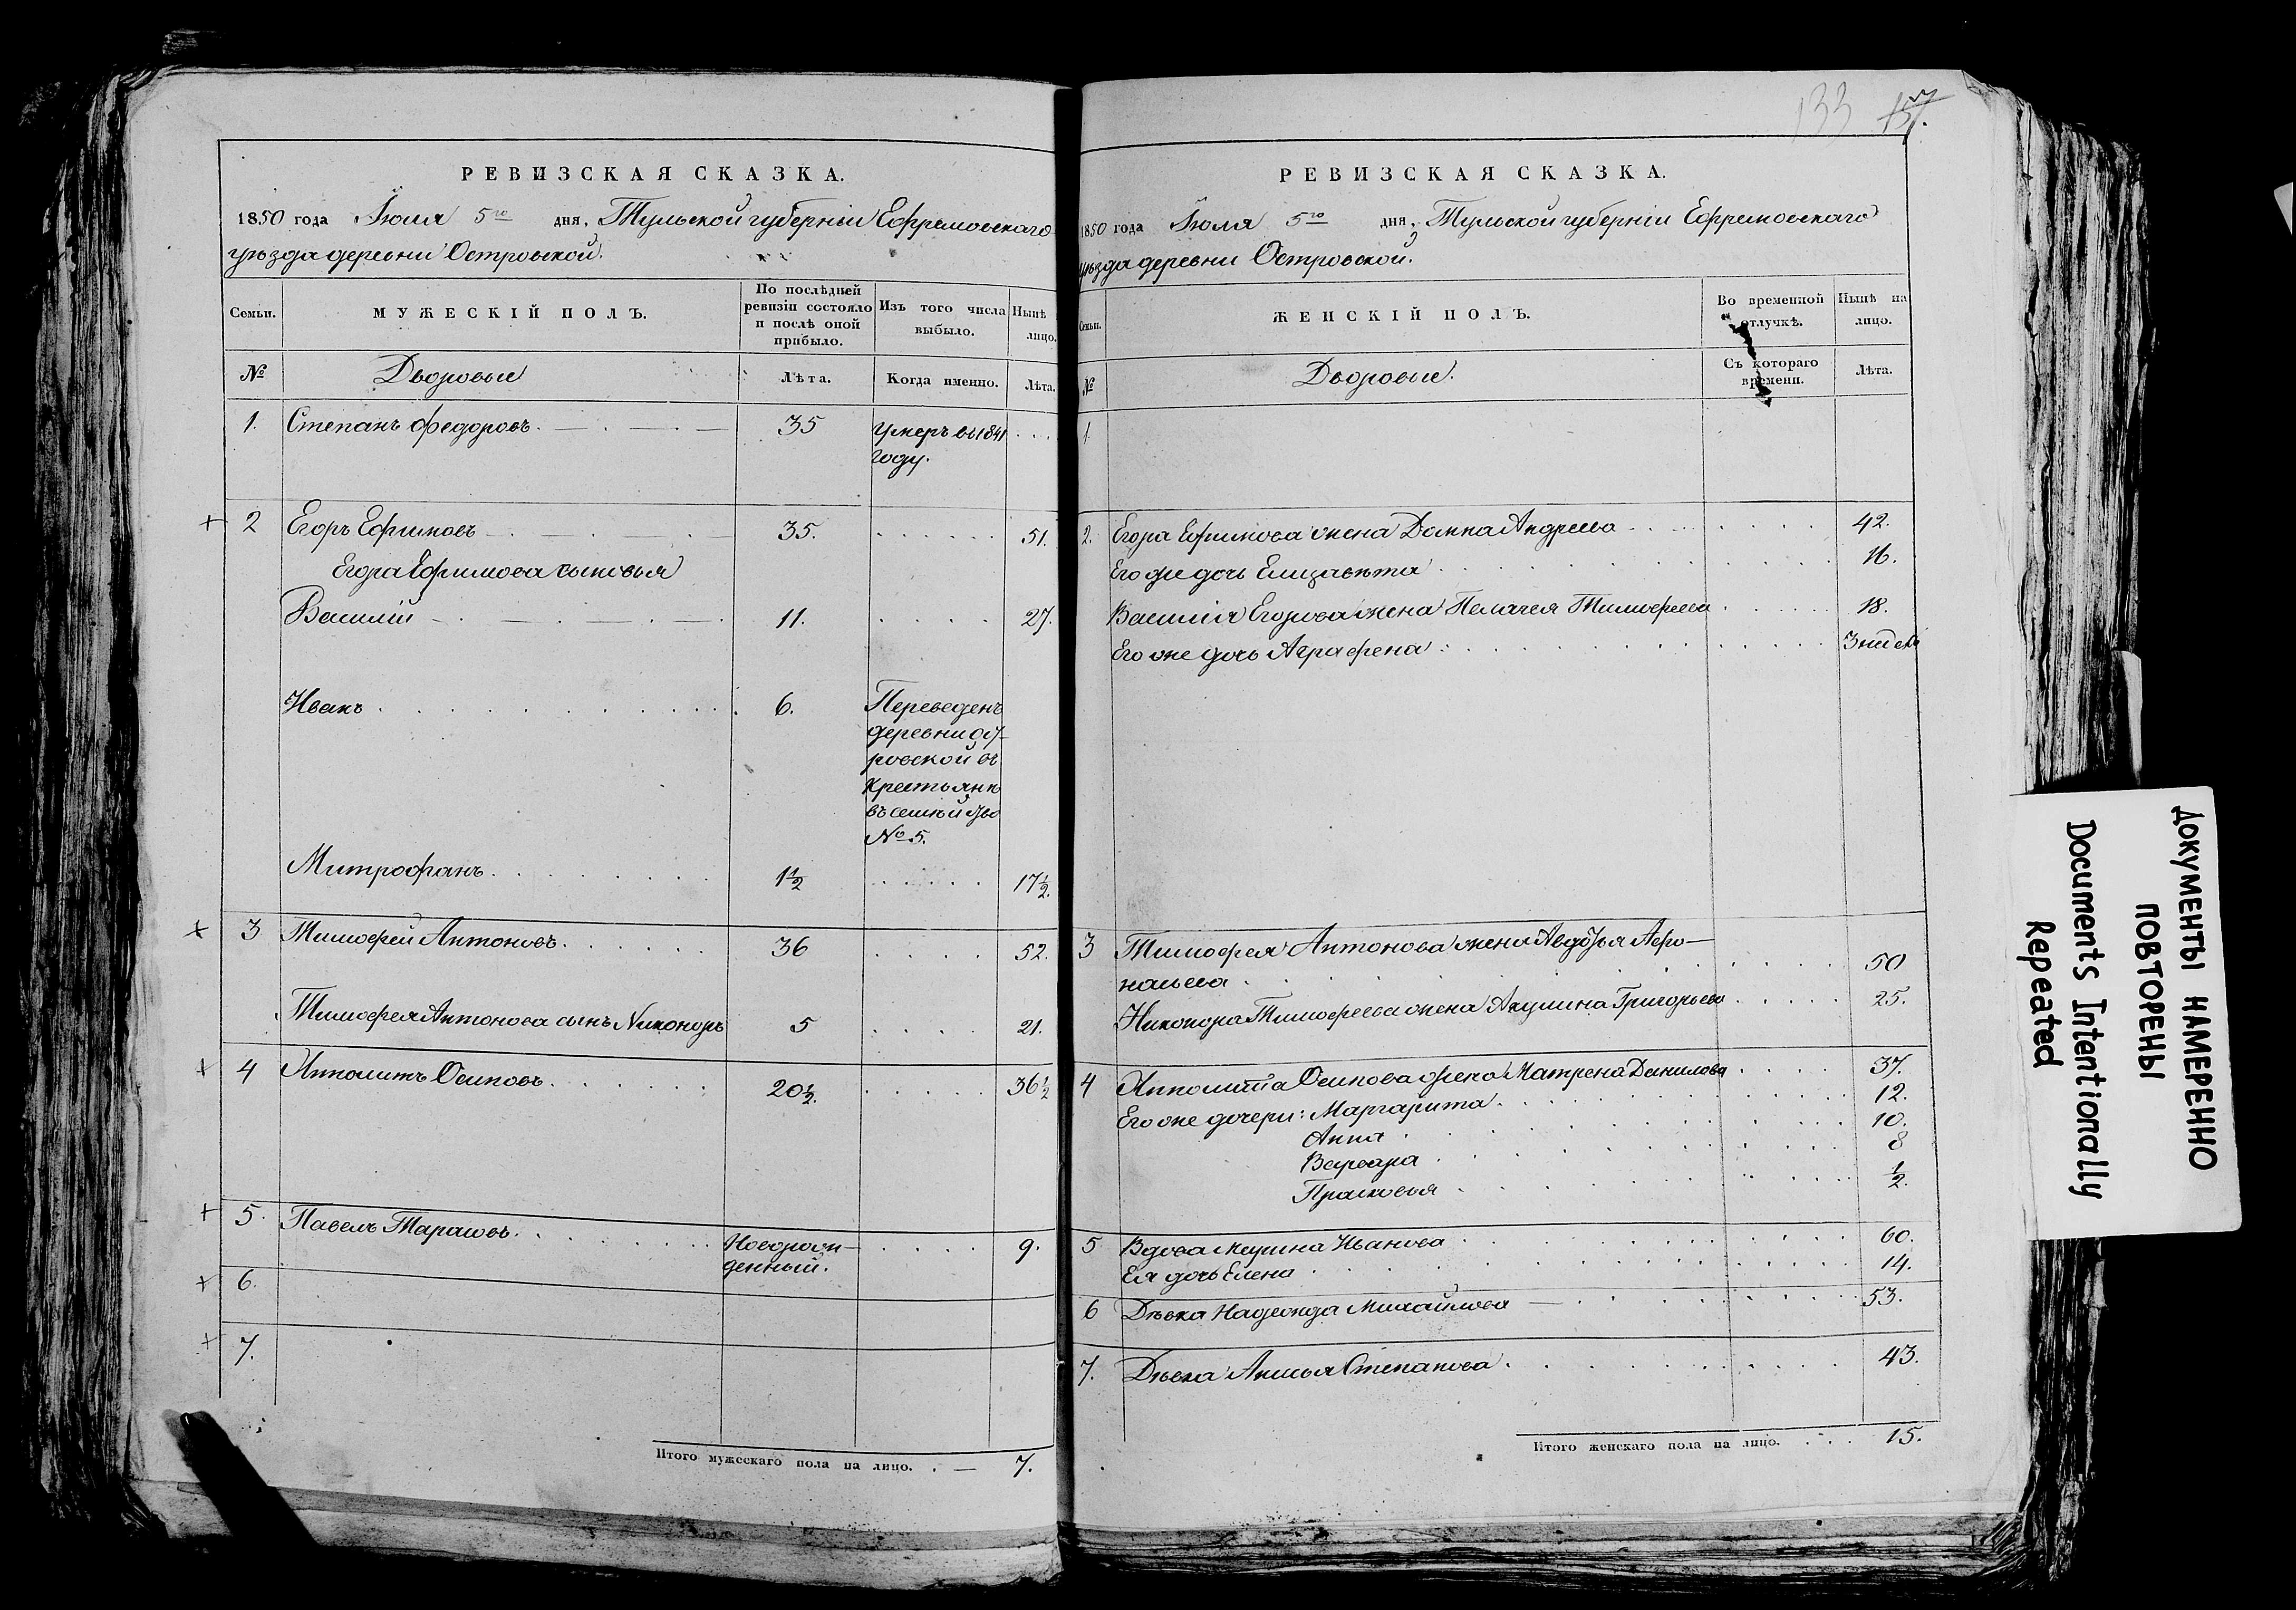 133
РЕВИЗСКАЯ СКАЗКА.
1850 года Іюля 5го дня, Тульской губерніи Ефремовскаго
уѣзда деревни Островской.
Семьи.
МУЖЕСКІЙ ПОЛЪ.
По послѣдней ревизіи состояло и послѣ оной прибыло.
Изъ того числа выбыло.
Нынѣ лицо.
№
Дворовые
Лѣта.
Когда именно.
Лѣта.
1. Степанъ Федоровъ. 35 Умеръ въ 1841
году.
2 Егоръ Ефимовъ 35. 51.
Егора Ефимова сыновья
Василій 11. 27.
Иванъ 6. Переведенъ
деревни Ост-
ровской въ
крестьяне
въ
№ 5.
Митрофанъ 1½ 17½.
3 Тимофей Антоновъ 36 52.
Тимофея Антонова сынъ Никоноръ 5 21.
4 Ипполитъ Осиповъ 20½. 36½
5. Павелъ Тарасовъ. Новорож-
денный. 9.
6.
7.
Итого мужескаго пола на лицо. 7.
РЕВИЗСКАЯ СКАЗКА.
1850 года Іюля 5го дня, Тульской губерніи Ефремовскаго
уѣзда деревни Островской.
Семьи.
ЖЕНСКІЙ ПОЛЪ.
Во временной отлучкѣ.
Нынѣ на лицо.
№
Дворовые.
Съ котораго времени.
Лѣта.
1.
2. Егора Ефимова жена Домна Андреева 42.
Его же дочь Елизавета 16.
Василія Егорова жена Пелагея Тимофеева 18.
Его же дочь Аграфена 3 нед
3 Тимофея Антонова жена Авдотья Афо-
насьева 50
Никонора Тимофеева жена Акулина Григорьева 25.
4 Ипполита Осипова жена Матрена Данилова 37.
Его же дочери: Маргарита 12.
Анна 10.
Варвара 8
Прасковья ½.
5 Вдова Марина Иванова 60.
Ея дочь Елена 14.
6 Дѣвка Надежда Михайлова 53.
7. Дѣвка Анисья Степанова 43.
Итого женскаго пола на лицо. 15.
Документы намеренно
повторены
Documents Intentionally
Repeated